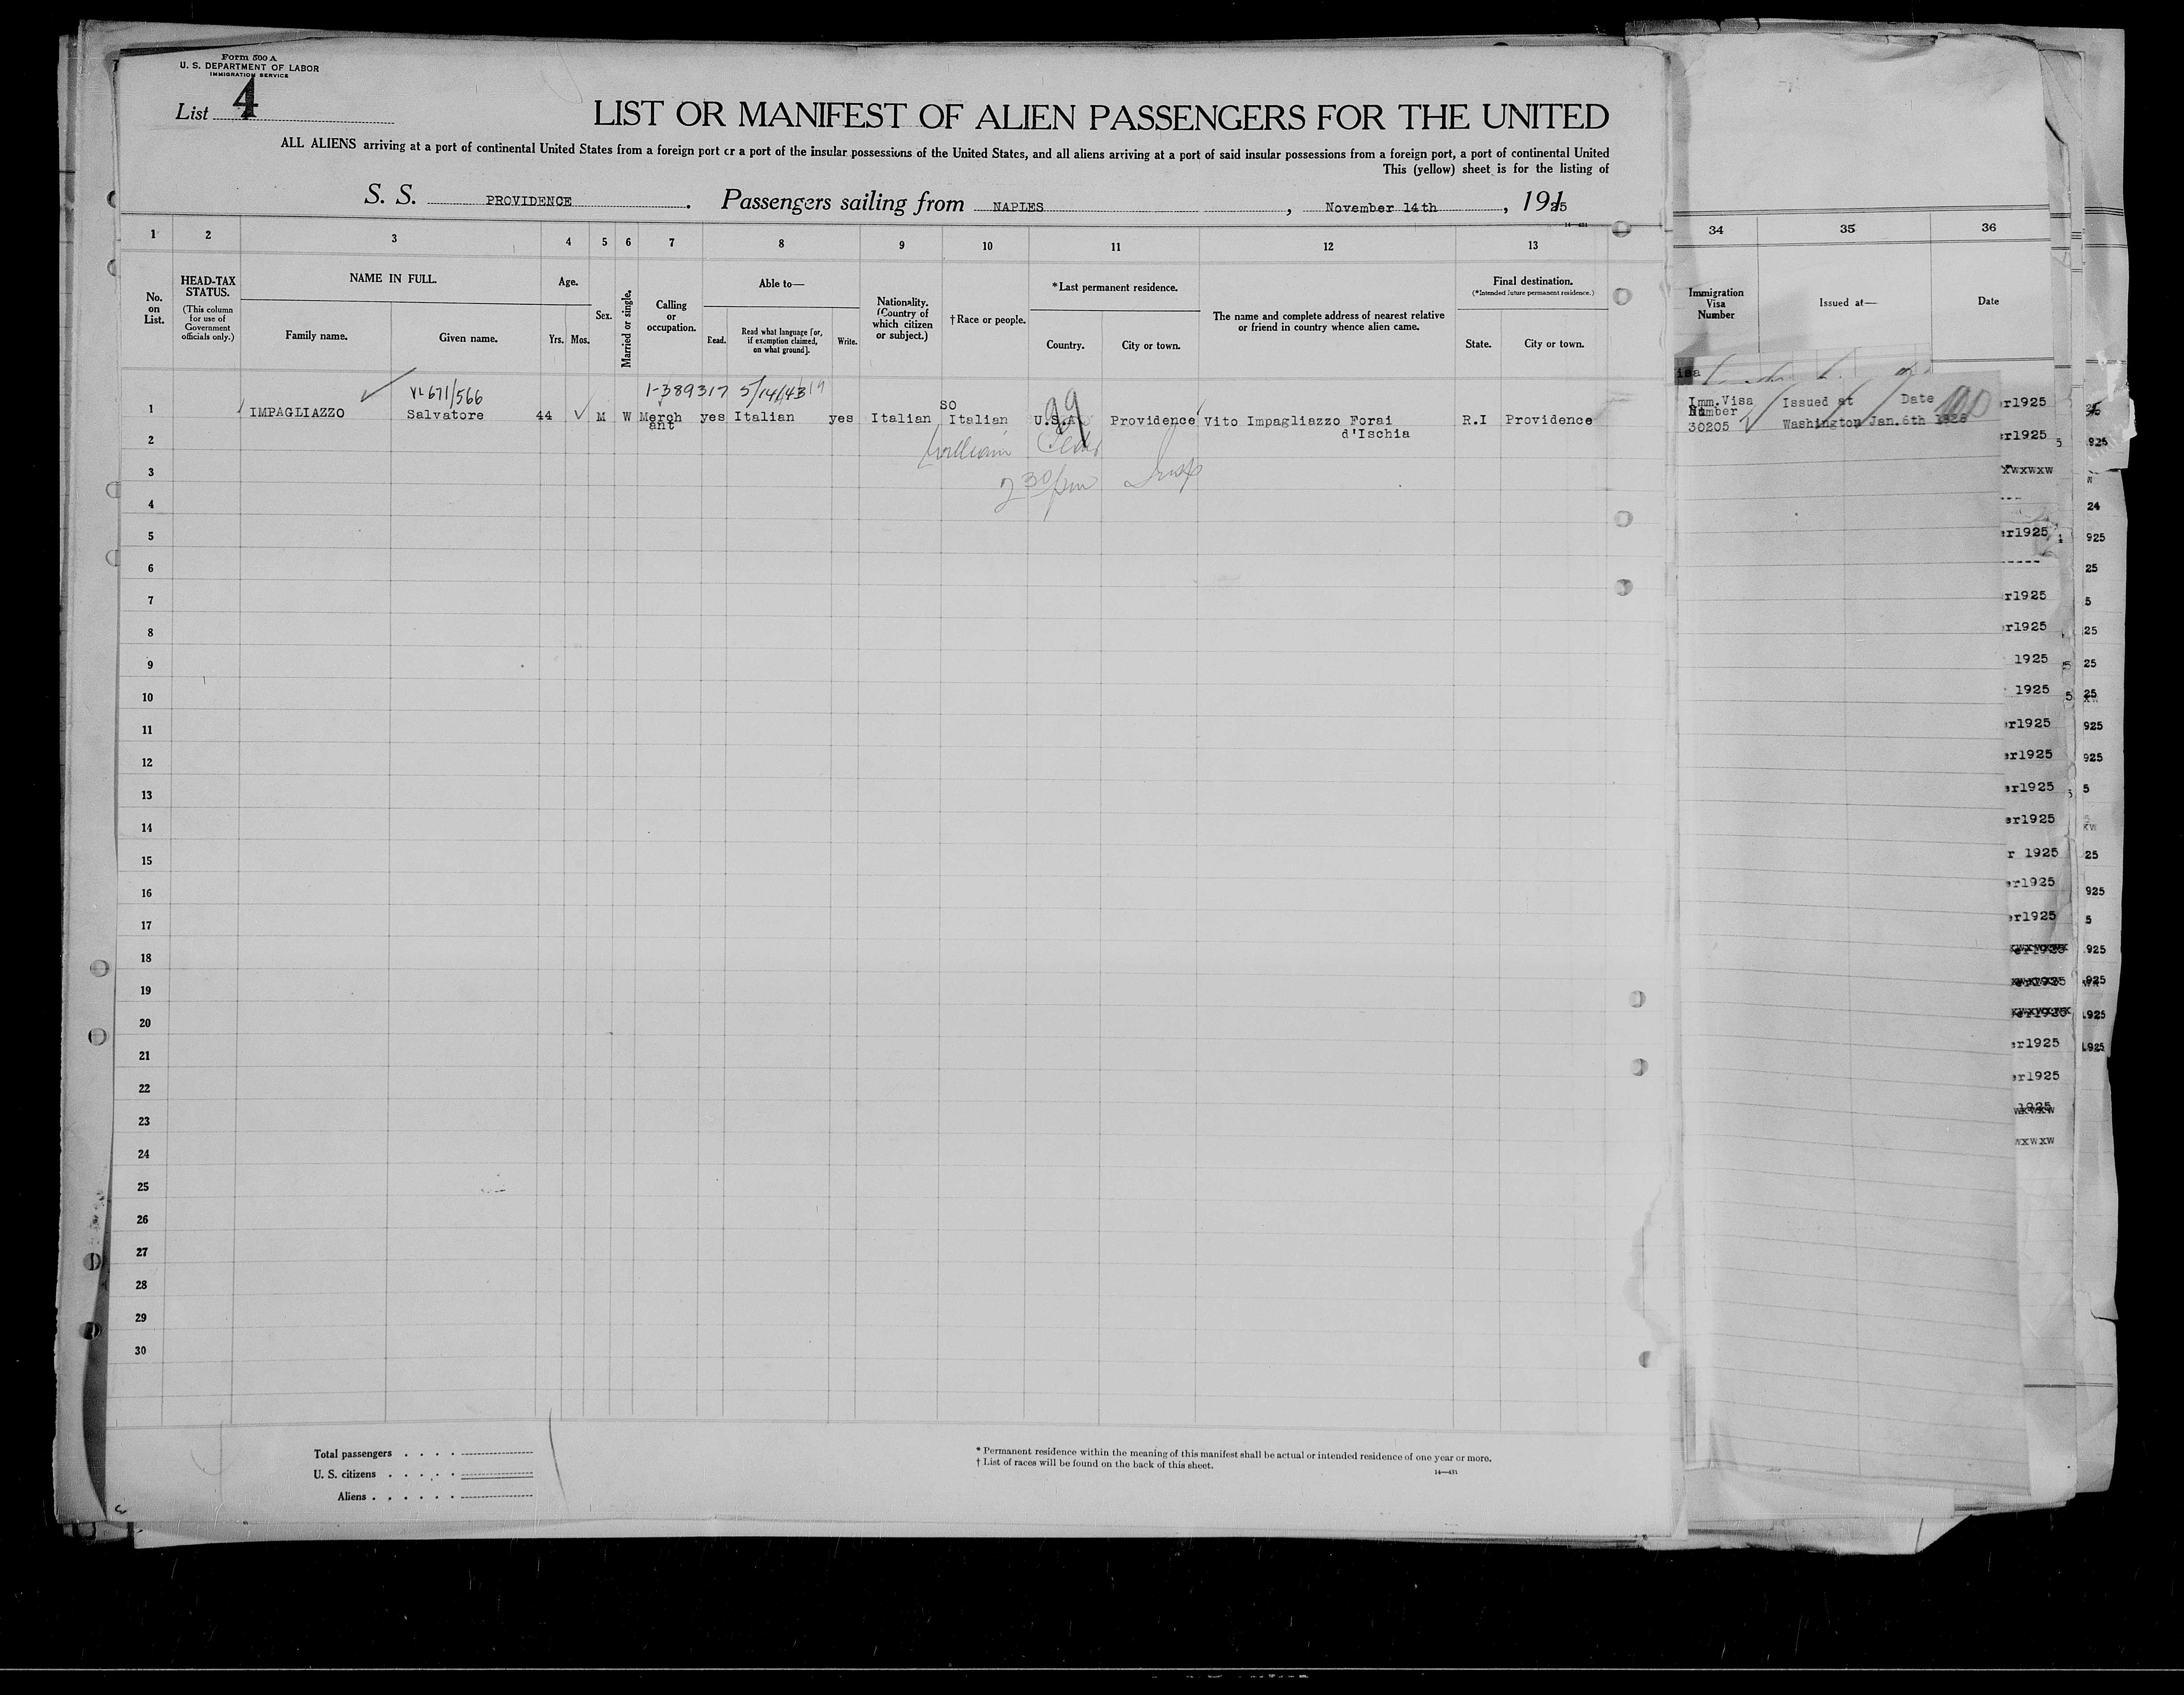 Form 500 A
U. S. DEPARTMENT OF LABOR
IMMIGRATION SERVICE
List 4
LIST OR MANIFEST OF ALIEN PASSENGERS FOR THE UNITED
ALL ALIENS arriving at a port of continental United States from a foreign port or a port of the insular possessions of the United States, and all aliens arriving at a port of said insular possessions from a foreign port, a port of continental United
This (yellow) sheet is for the listing of
S. S. PROVIDENCE. Passengers sailing from NAPLES, November 14th, 1925
14—431
1 2 3 4 5 6 7 8 9 10 11 12 13 34 35 36
No. on List.
HEAD-TAX STATUS.
(This column for use of Government officials only.)
NAME IN FULL.
Family name. Given name.
Age.
Yrs. Mos.
Sex.
Married or single.
Calling or occupation.
Able to—
Read. Read what language [or, if exemption claimed, on what ground]. Write.
Nationality. (Country of which citizen or subject.)
†Race or people.
*Last permanent residence.
Country. City or town.
The name and complete address of nearest relative or friend in country whence alien came.
Final destination.
(*Intended future permanent residence.)
State. City or town.
Immigration Visa Number
Issued at—
Date
VL 671/566 1-389317 5/14/43
1 IMPAGLIAZZO Salvatore 44 M W Merch yes Italian yes Italian SO Italian U.S.A Providence Vito Impagliazzo Forai R.I Providence
ant d'Ischia
Imm.Visa Issued at Date
Number
30205 Washington Jan.6th
William
2 30/pm Insp
2
3
4
5
6
7
8
9
10
11
12
13
14
15
16
17
18
19
20
21
22
23
24
25
26
27
28
29
30
Total passengers
U. S. citizens
Aliens
* Permanent residence within the meaning of this manifest shall be actual or intended residence of one year or more.
† List of races will be found on the back of this sheet.
14—431